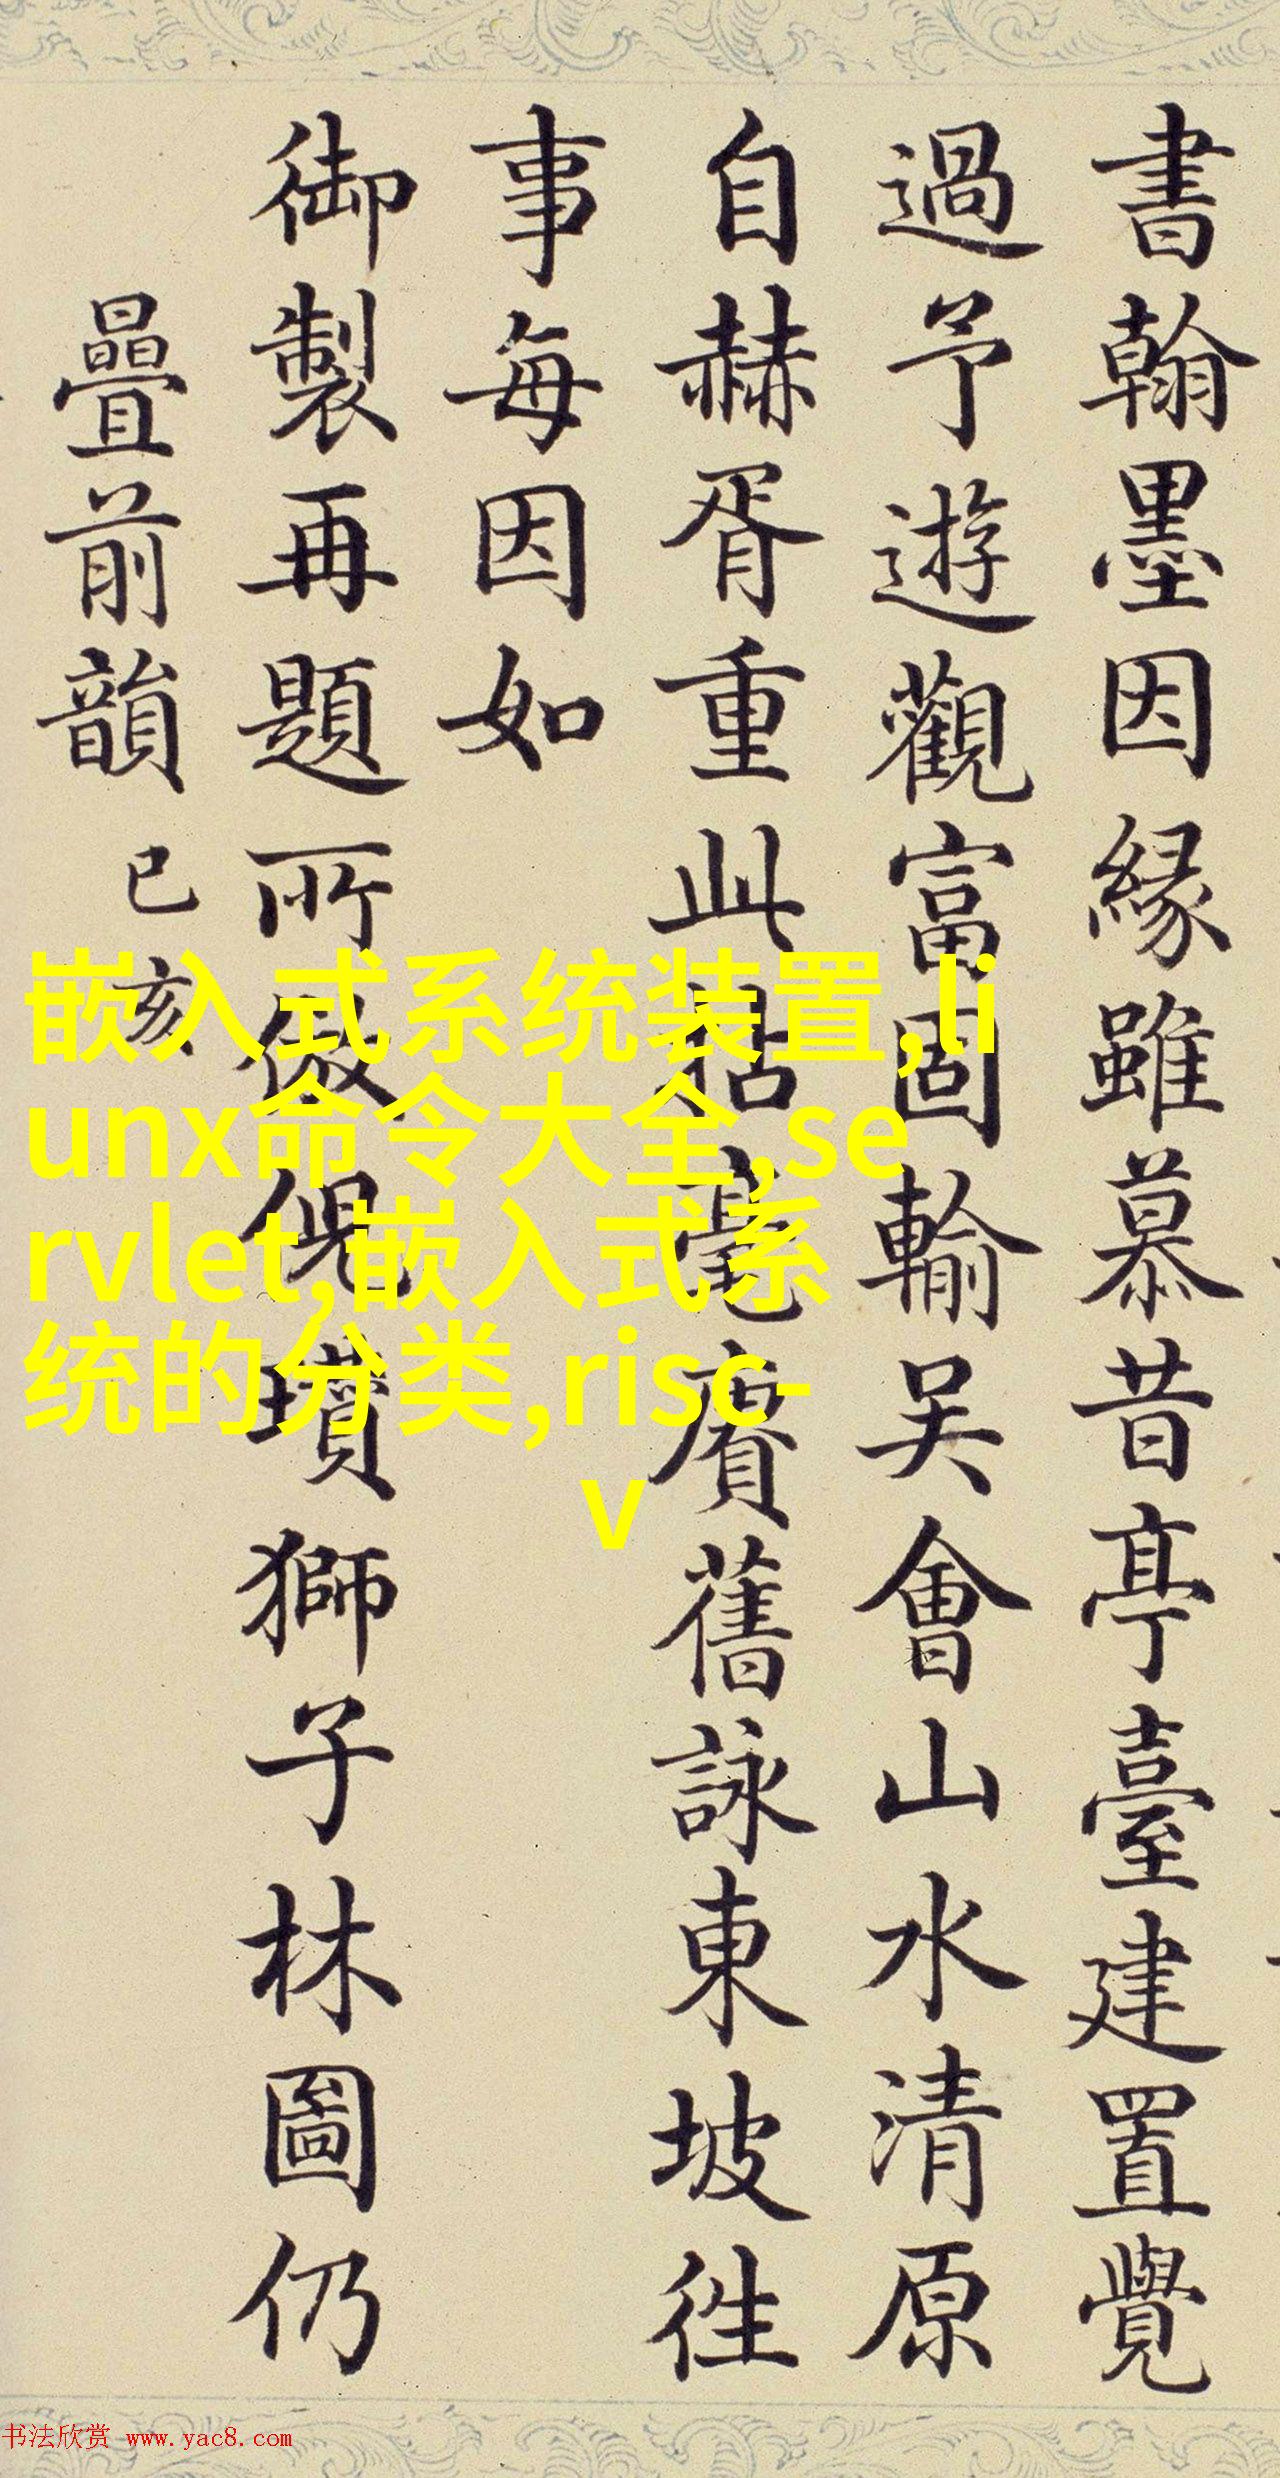 書翰墨因緣雖慕昔亭臺建置覺
過予遊觀富固輸吴會山水清原
自赫胥重此拈毫賡舊詠東坡徃
事每因如
御製再題所倣倪瓚獅子林圖仍
疊前韻 己亥
嵌入式系统装置,li
unx命令大全,se
rvlet,嵌入式系
统的分类,risc-
v
书法欣赏 www.yac8.com